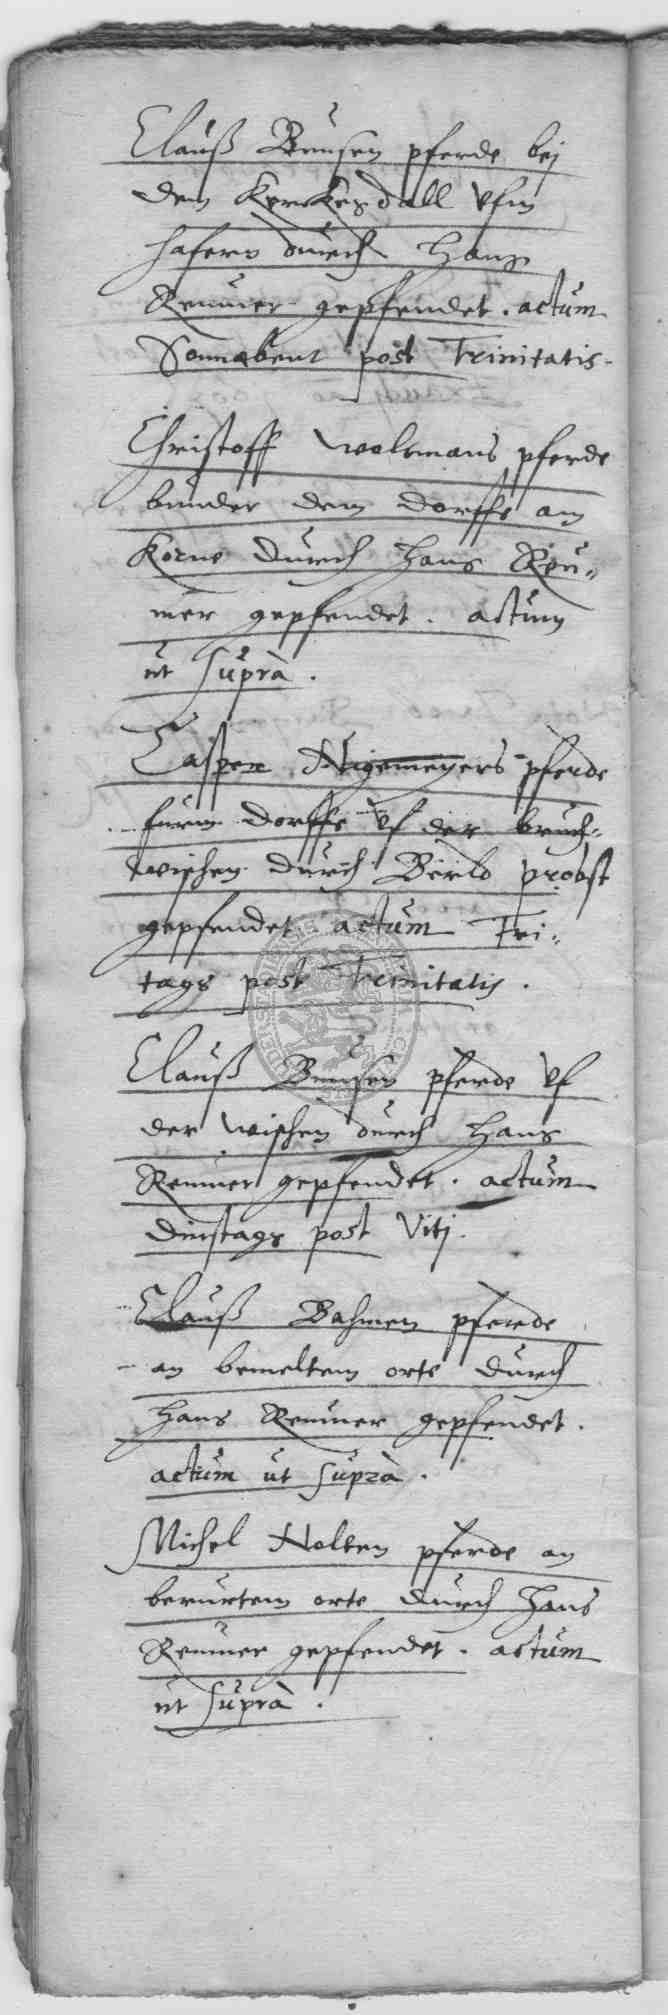 Clauß Bensen pferde bej
dem Kerckesdall vfm
hafern durch Hans
Remmer gepfendet. actum
Sonnabent post Trinitatis.
Christoff Wolemans pferde
bunder dem dorffe am
Korne durch Hans Rem-
mer gepfendet. actum
ut suprà.
Casper Nigemeyers pferde
furm dorffe vf der bruch-
wischen durch Berld probst
gepfendet actum Fri-
tags post Trinitatis.
Clauß Bensen pferde vf
der wischen durch Hans
Remmer gepfendet. actum
dinstags post Viti.
Clauß Bahmen pferde
an bemeltem orte durch
Hans Remmer gepfendet.
actum ut suprà.
Michel Nolten pferde an
berurtem orte durch Hans
Remmer gepfendet. actum
ut suprà.